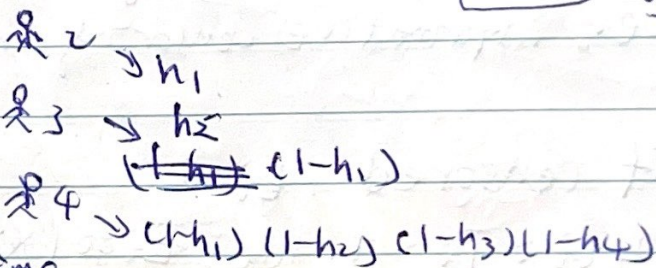 2
→ h1
3 → h2
(1-h1) (1-h1)
4
→ (1-h1) (1-h2) (1-h3)(1-h4)